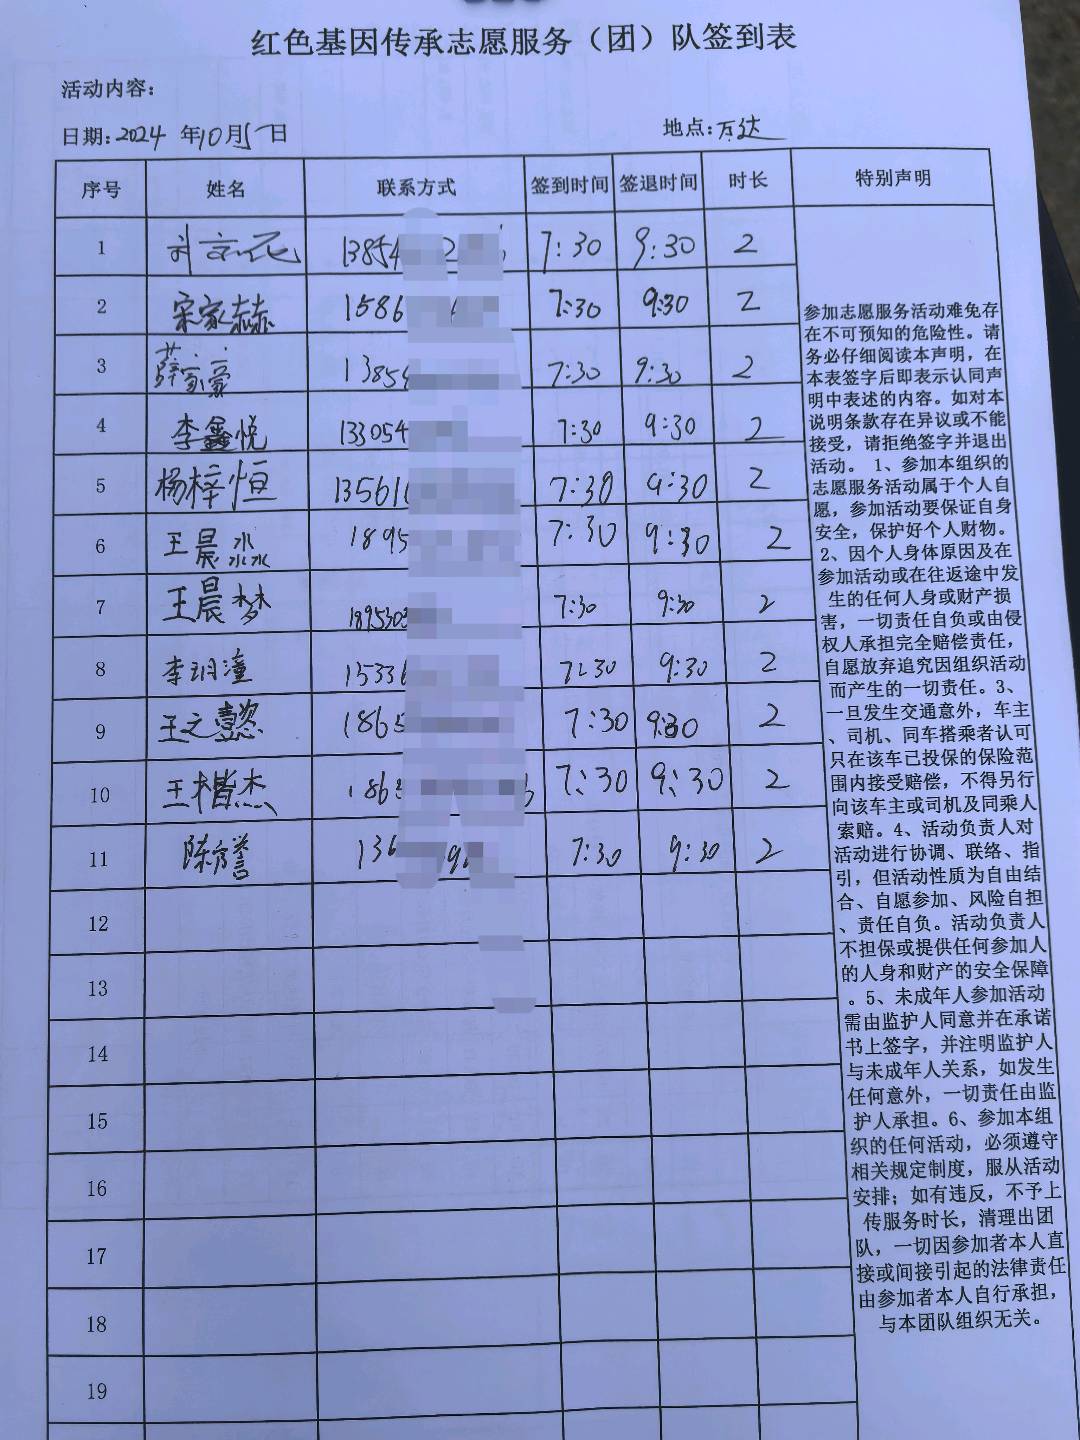 红色基因传承志愿服务（团）队签到表
活动内容：
日期：2024 年10月5日 地点：万达
序号 姓名 联系方式 签到时间 签退时间 时长 特别声明
1 13854 7:30 9:30 2
2 宋家赫 1586 7:30 9:30 2
3 薛家豪 13854 7:30 9:30 2
4 李鑫悦 133054 7:30 9:30 2
5 杨梓恒 135610 7:30 9:30 2
6 王晨淼 1895 7:30 9:30 2
7 王晨梦 1895303 7:30 9:30 2
8 李玥潼 15336 7:30 9:30 2
9 王之懿 1865 7:30 9:30 2
10 王楷杰 1863 7:30 9:30 2
11 陈彦誉 136 7:30 9:30 2
12
13
14
15
16
17
18
19
参加志愿服务活动难免存
在不可预知的危险性。请
务必仔细阅读本声明，在
本表签字后即表示认同声
明中表述的内容。如对本
说明条款存在异议或不能
接受，请拒绝签字并退出
活动。 1、参加本组织的
志愿服务活动属于个人自
愿，参加活动要保证自身
安全，保护好个人财物。
2、因个人身体原因及在
参加活动或在往返途中发
生的任何人身或财产损
害，一切责任自负或由侵
权人承担完全赔偿责任，
自愿放弃追究因组织活动
而产生的一切责任。3、
一旦发生交通意外，车主
、司机、同车搭乘者认可
只在该车已投保的保险范
围内接受赔偿，不得另行
向该车主或司机及同乘人
索赔。4、活动负责人对
活动进行协调、联络、指
引，但活动性质为自由结
合、自愿参加、风险自担
、责任自负。活动负责人
不担保或提供任何参加人
的人身和财产的安全保障
。5、未成年人参加活动
需由监护人同意并在承诺
书上签字，并注明监护人
与未成年人关系，如发生
任何意外，一切责任由监
护人承担。6、参加本组
织的任何活动，必须遵守
相关规定制度，服从活动
安排；如有违反，不予上
传服务时长，清理出团
队，一切因参加者本人直
接或间接引起的法律责任
由参加者本人自行承担，
与本团队组织无关。